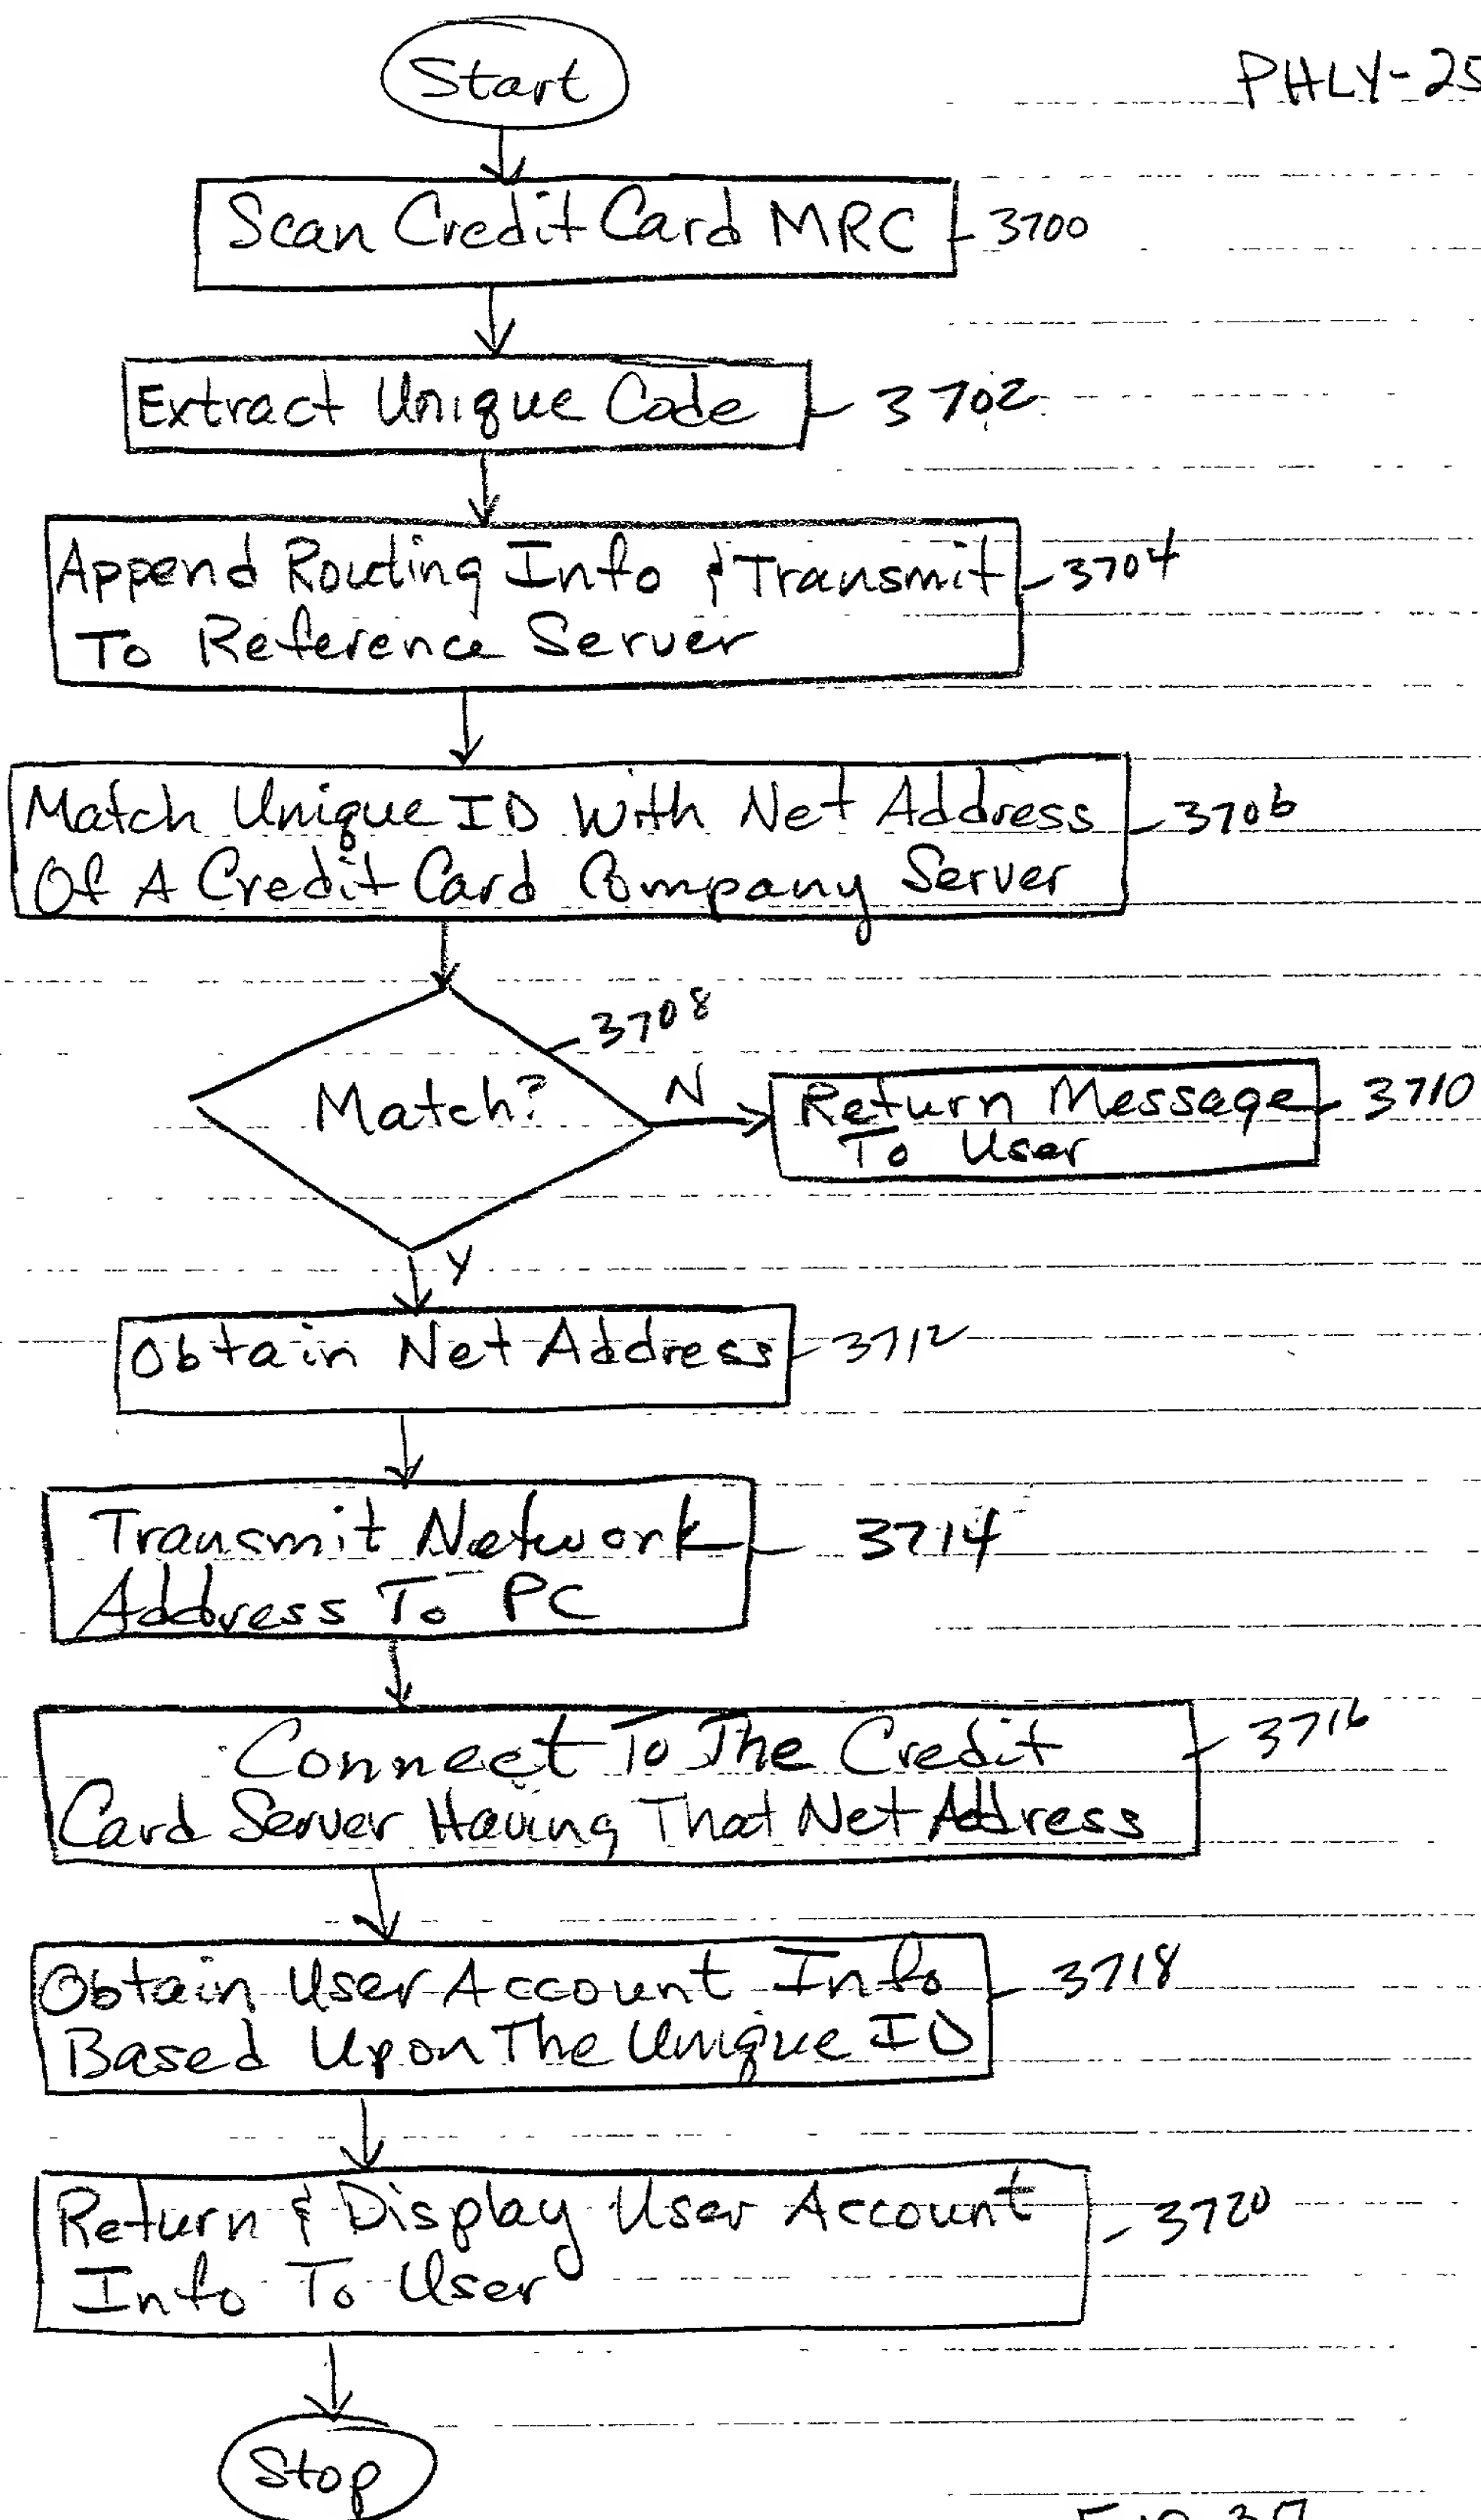 Start
PHLY-25
Scan Credit Card MRC
3700
Extract Unique Code
3702
Append Routing Info & Transmit
To Reference Server
3704
Match Unique ID With Net Address
Of A Credit Card Company Server
3706
Match?
3708
N
Return Message
To User
3710
Y
Obtain Net Address
3712
Transmit Network
Address To PC
3714
Connect To The Credit
Card Server Having That Net Address
3716
Obtain User Account Info
Based Upon The Unique ID
3718
Return & Display User Account
Info To User
3720
Stop